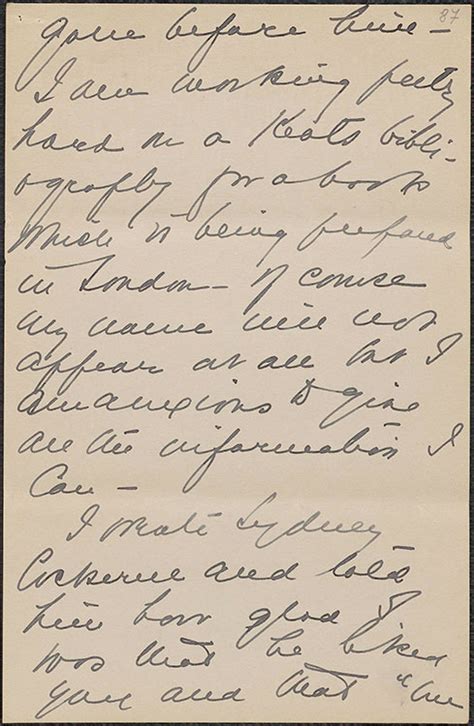 87
gone before him –
I am working pretty
hard on a Keats bibli-
ography for a book
which is being prepared
in London – of course
my name will not
appear at all but I
am anxious to give
all the information I
can –
I wrote Sydney
Cockerell and told
him how glad I
was that he liked
you and that "